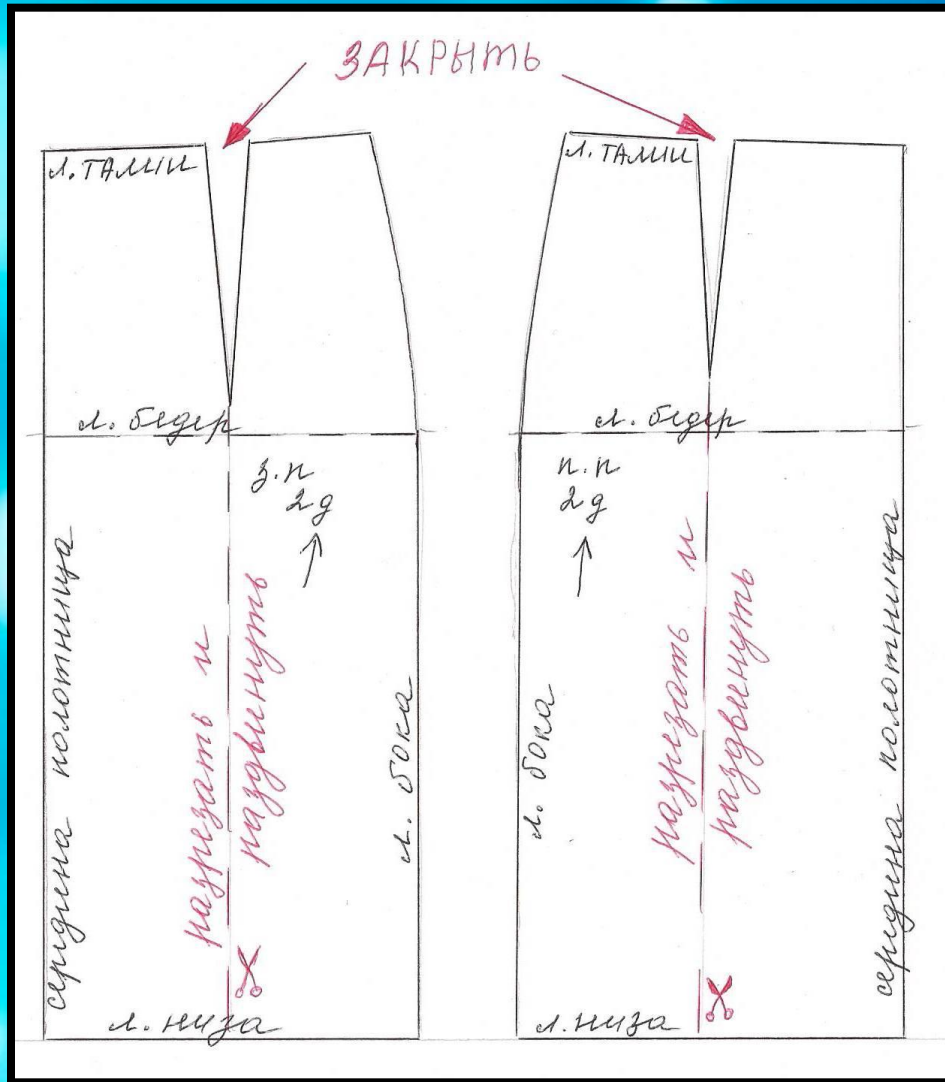 ЗАКРЫТЬ
л. ТАЛИИ
л. бедер
з.п
2д
середина полотнища
разрезать и
раздвинуть
л. бока
л. низа
л. ТАЛИИ
л. бедер
п.п
2д
л. бока
разрезать и
раздвинуть
середина полотнища
л. низа